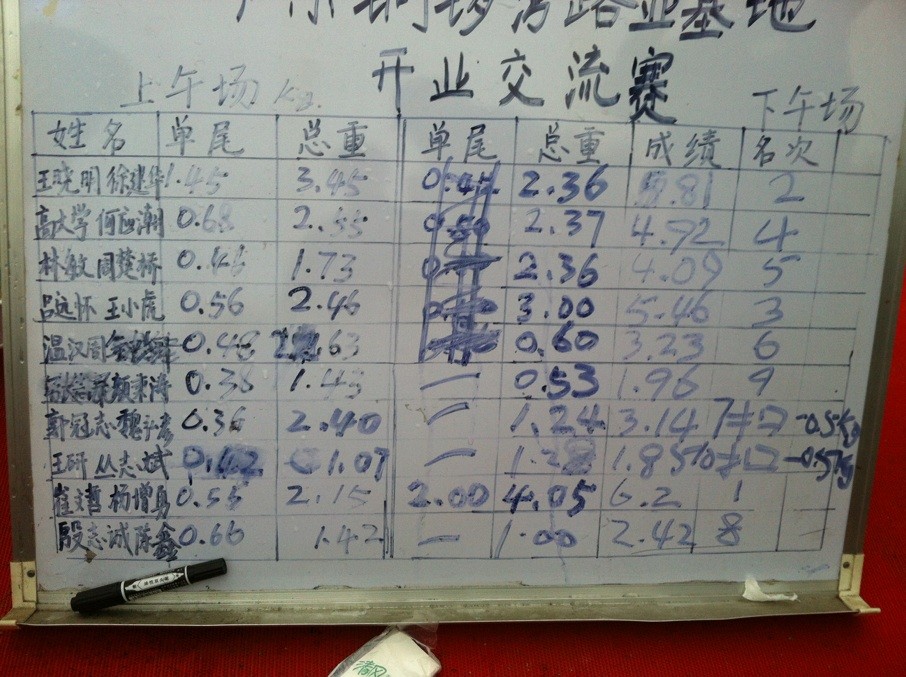 路亚基地
开业交流赛
上午场 Kg. 下午场
姓名 单尾 总重 单尾 总重 成绩 名次
王晓明 徐建华 1.45 3.45 2.36 5.81 2
高大学 何应潮 0.68 2.55 0.50 2.37 4.92 4
林敏 周楚桥 1.73 2.36 4.09 5
吕远怀 王小虎 0.56 2.46 3.00 5.46 3
温汉周 0.48 2.63 0.60 3.23 6
颜来涛 0.38 1.43 — 0.53 1.96 9
郭冠志 魏 0.36 2.40 — 1.24 3.14 7 -0.5kg
王研 丛志斌 0.42 1.07 — 1.28 1.85 10 -0.5kg
崔文哲 杨增 0.55 2.15 2.00 4.05 6.2 1
殷志诚 陈鑫 0.66 1.42 — 1.00 2.42 8
清风